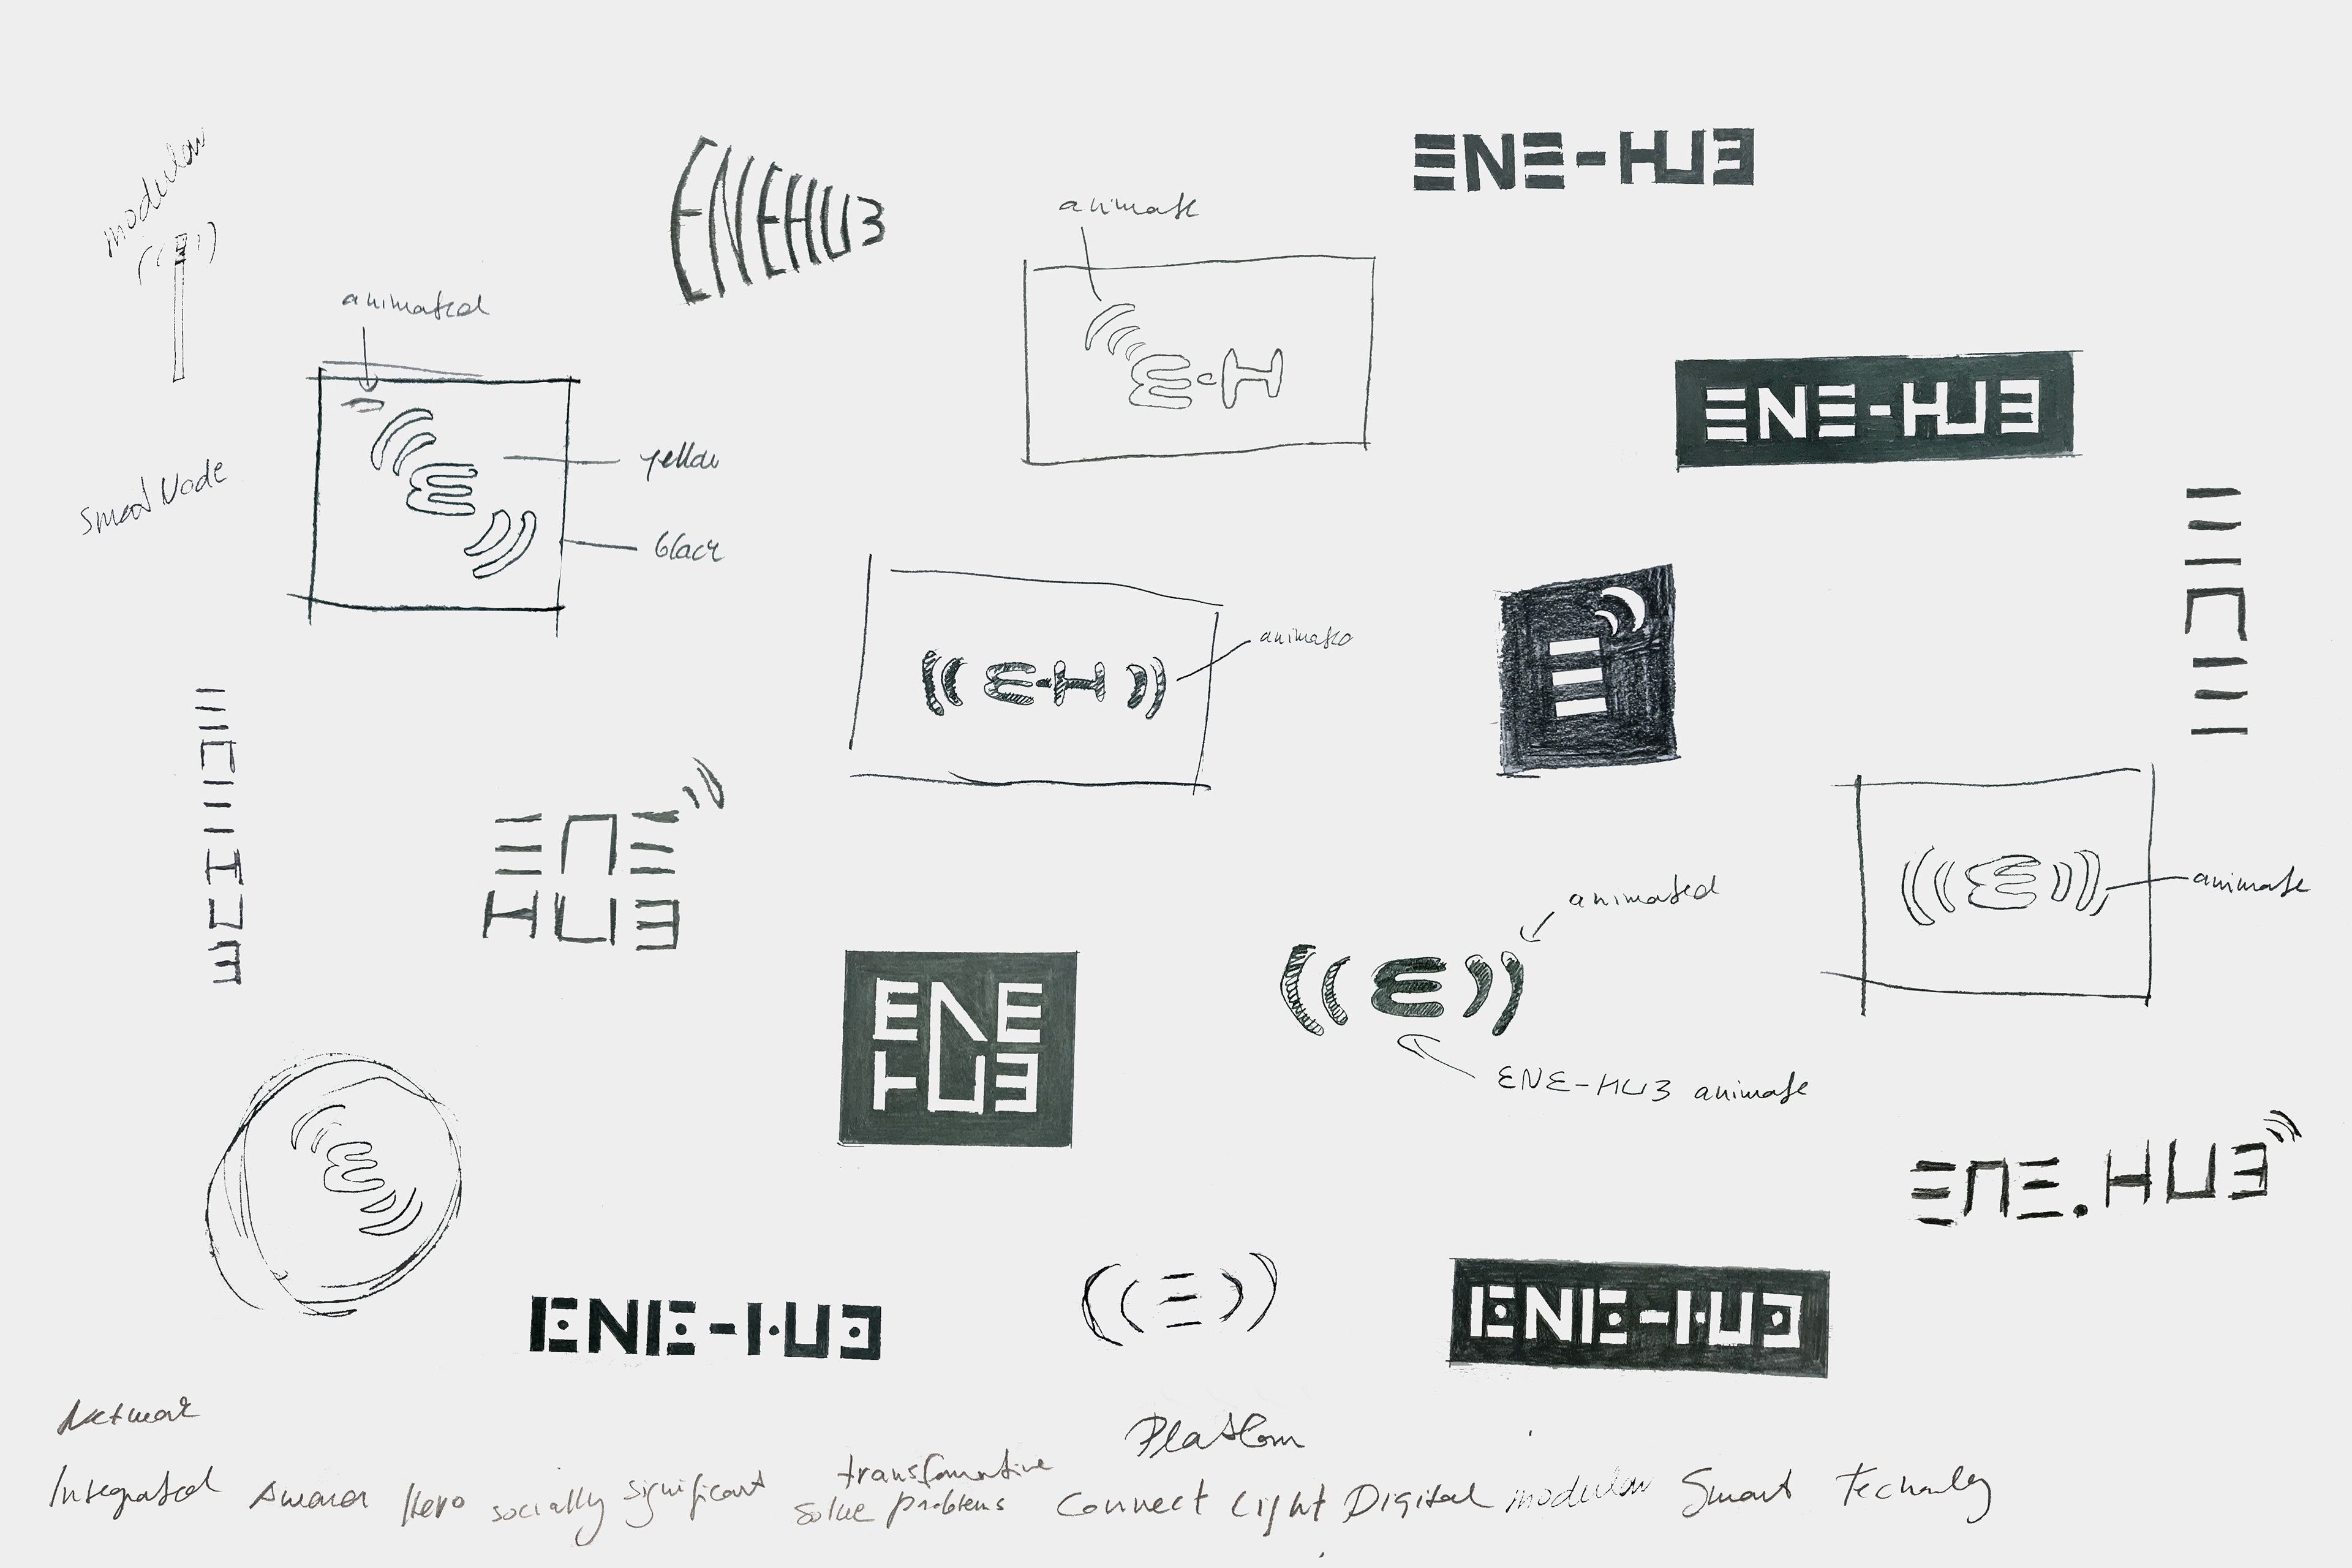 modular
ENEHUB
ENE-HUB
animate
animated
E-H
ENE-HUB
yellow
E
black
Smart Node
ENE
animate
E-H
E
ENE
HUB
ENE
HUB
animated
E
animate
E
ENE
HUB
ENE-HUB animate
E
ENE.HUB
ENE-HUB
E
ENE-HUB
Network
Platform
transformative
Integrated
Hero
socially significant
solve problems
Connect
Light
Digital
modular
Smart